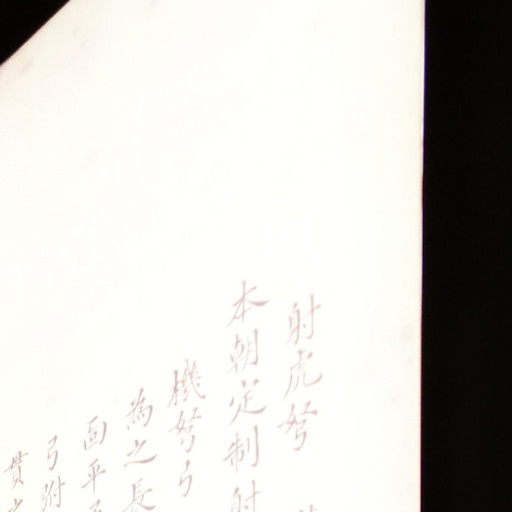 射虎弩
本朝定制射
機弩弓
為之長
面平
弓弣
貫